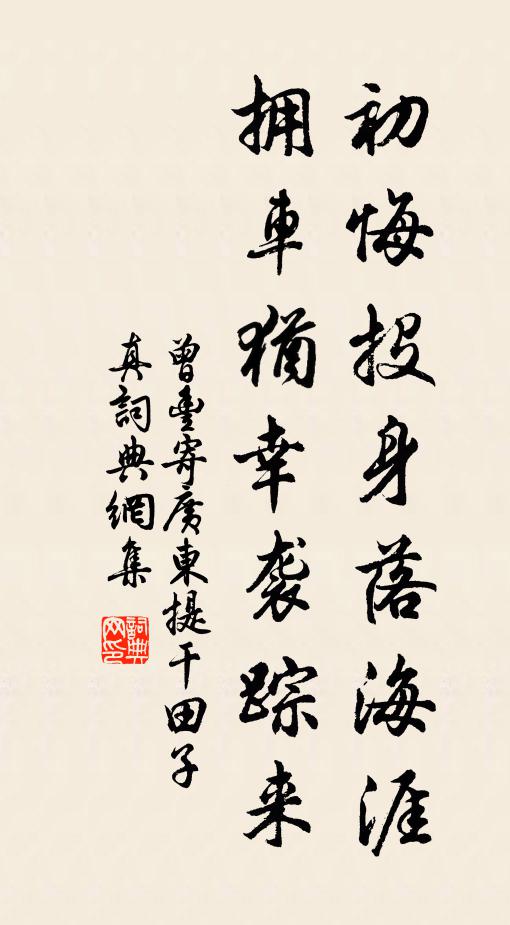 初悔投身落海涯
拥車猶幸袭踪来
曾豐寄廣東提干田子
真詞典網集
詞典网印